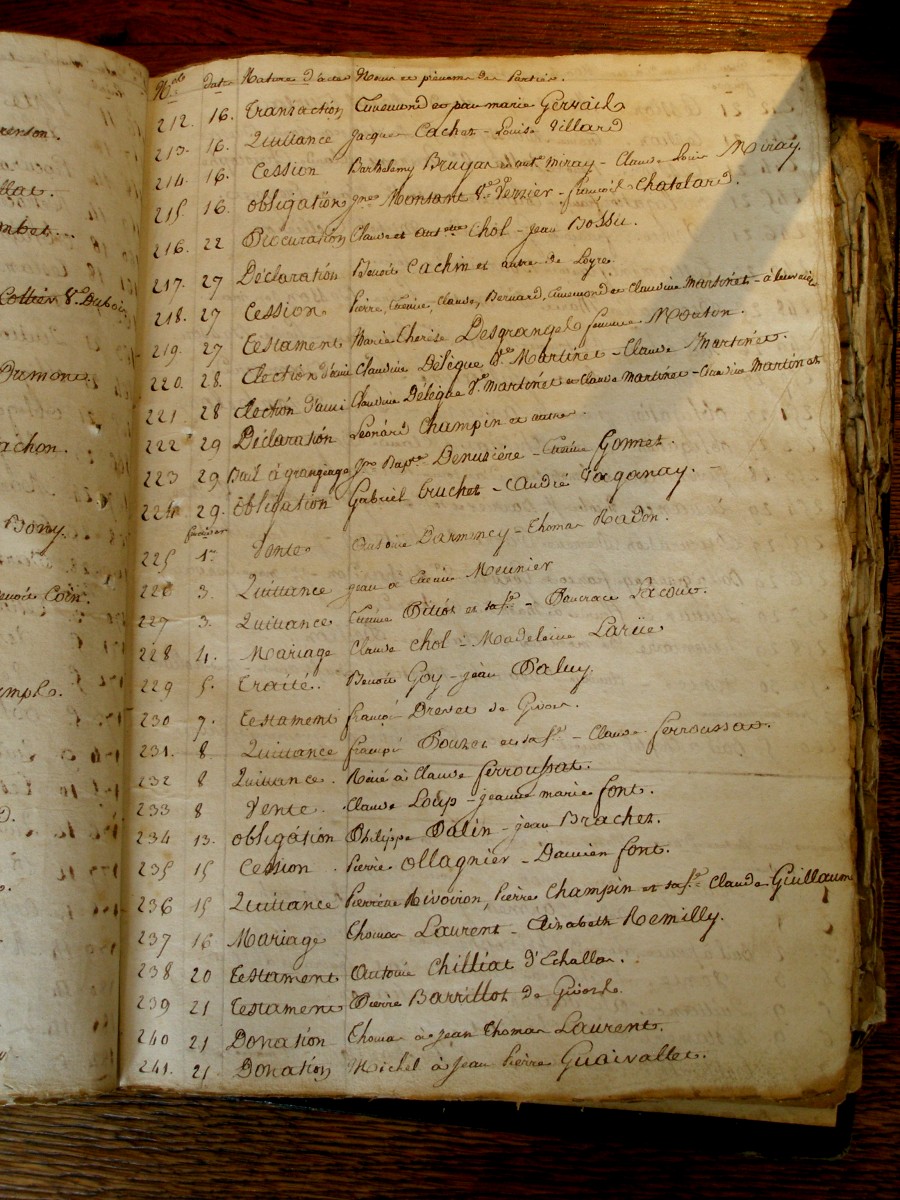 renson.
llat.
mbet...
Collier Ve. Dubois
Dumont.
achon.
Bony.
Benoit Coin.
Nos. date Nature d'actes Noms et prénoms des Parties.
212. 16. Transaction Ennemond et pau marie Gervais
213. 16. Quittance Jacques Cachet - Louise Villard
214. 16. Cession Barthelemy Bruyas et aut. miray - Claude Louis Miray.
215. 16 obligation Jne Montant Ve. Verzier - françois Chatelard.
216. 22 Procuration Claude et autres Chol - Jean Bossu.
217. 27 Déclaration Benoit Cachin et autre de Loyre.
218. 27 Cession Pierre, Etienne, Claude, Bernard, Ennemond et Claudine Martinet - à leur
219. 27 Testament Marie Therese Desgranges femme Mouton.
220. 28. Election d'ami Claudine Délègue Ve. Martinet - Claude Martinet.
221. 28 élection d'ami Claudine Délègue Ve. Martinet et Claude Martinet - Martinet
222 29 Déclaration Leonard Champin et autre.
223 29 Bail à grangeage Jn Bapte. Denuzière - Etienne Gonnet.
224 29. obligation Gabriel Cruchet - André Paganay.
225 1er Vente Antoine Darmency - Thomas Radon.
226 3. Quittance jean à Etienne Meunier
227 3. Quittance Etienne Pitiot et sa fe. - Pancrace Lacour.
228 4. Mariage Claude Chol - Madeleine Larüe
229 5. Traité. Benoit Goy - jean Paluy.
230 7. Testament françois Drevet de Givors.
231. 8 Quittance françois Pouzet et sa fe. - Claude ferroussat.
232 8 Quittance. René à Claude ferroussat.
233 8 Vente. Claude Loup - jeanne marie font.
234 13. obligation Philippe Palin - jean Brachet.
235 15 Cession. Pierre Ollagnier - Damien font.
236 15 Quittance Pierrette Rivoiron, Pierre Champin et sa fe. Claude Guillaum
237 16 Mariage Thomas Laurent - Elizabeth Remilly.
238 20 Testament Antoine Chilliat d'Echallas.
239 21 Testament Pierre Barrillot de Givors.
240 21 Donation Thomas à Jean Thomas Laurent.
241. 21. Donation Michel à Jean Pierre Guaivallet.